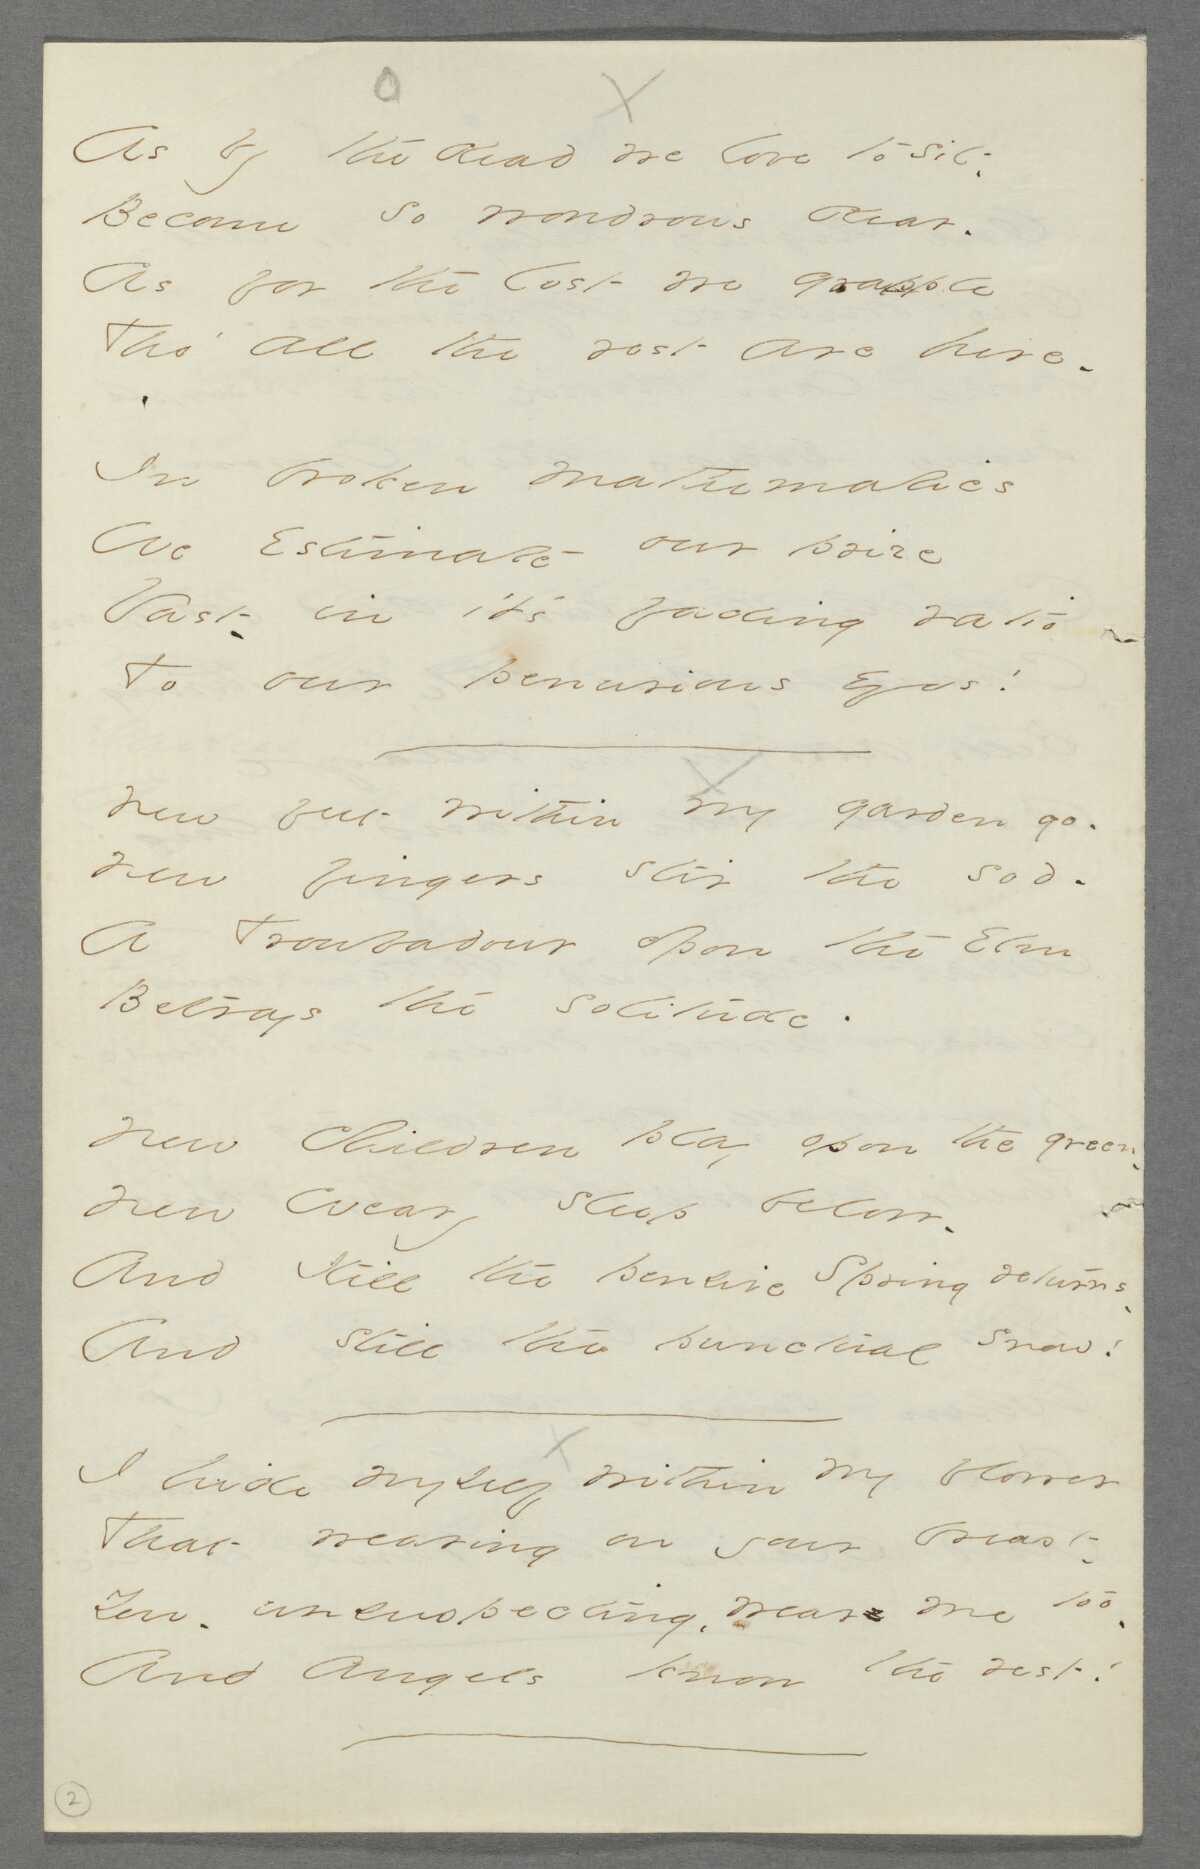 O X
As by the dead we love to sit -
Become so wondrous dear -
As for the lost we grapple
Tho' all the rest are here -
In broken mathematics
We estimate our prize
Vast - in it's fading ratio
To our penurious eyes!
X
New feet within my garden go -
New fingers stir the sod -
A Troubadour opon the Elm
Betrays the solitude.
New Children play opon the green -
New Weary sleep below -
And still the pensive Spring returns -
And still the punctual snow!
X
I hide myself within my flower
That wearing on your breast -
You - unsuspecting, wear me too -
And angels know the rest!
2